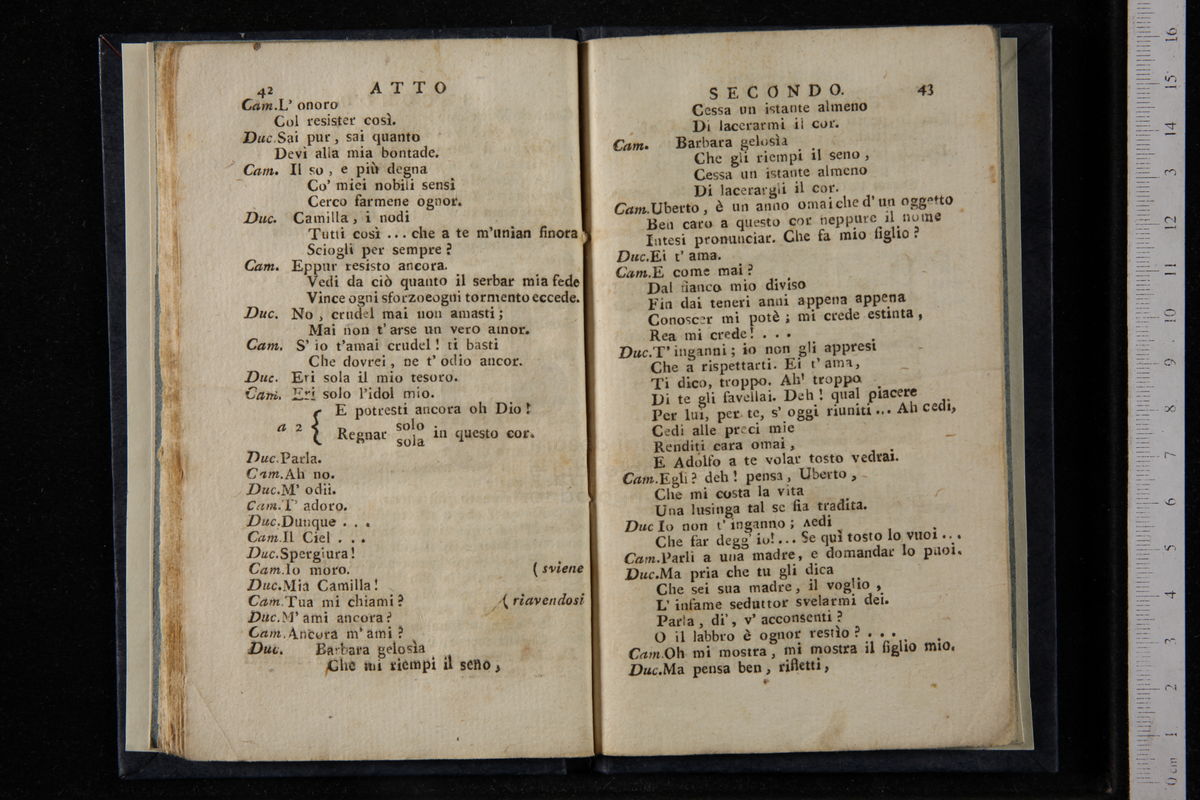 42 ATTO
Cam. L' onoro
Col resister così.
Duc. Sai pur, sai quanto
Devi alla mia bontade.
Cam. Il so, e più degna
Co' miei nobili sensi
Cerco farmene ognor.
Duc. Camilla, i nodi
Tutti così ... che a te m'unian finora
Sciogli per sempre?
Cam. Eppur resisto ancora.
Vedi da ciò quanto il serbar mia fede
Vince ogni sforzoeogni tormento eccede.
Duc. No, crudel mai non amasti;
Mai non t'arse un vero amor.
Cam. S' io t'amai crudel! ti basti
Che dovrei, ne t' odio ancor.
Duc. Eri sola il mio tesoro.
Cam. Eri solo l'idol mio.
E potresti ancora oh Dio!
a 2 { Regnar solo sola in questo cor.
Duc. Parla.
Cam. Ah no.
Duc. M' odii.
Cam. T' adoro.
Duc. Dunque . . .
Cam. Il Ciel . . .
Duc. Spergiura!
Cam. Io moro. ( sviene
Duc. Mia Camilla!
Cam. Tua mi chiami? ( riavendosi
Duc. M' ami ancora?
Cam. Ancora m' ami?
Duc. Barbara gelosìa
Che mi riempi il seno,
SECONDO. 43
Cessa un istante almeno
Di lacerarmi il cor.
Cam. Barbara gelosìa
Che gli riempi il seno,
Cessa un istante almeno
Di lacerargli il cor.
Cam. Uberto, è un anno omai che d' un oggetto
Ben caro a questo cor neppure il nome
Intesi pronunciar. Che fa mio figlio?
Duc. Ei t' ama.
Cam. E come mai?
Dal fianco mio diviso
Fin dai teneri anni appena appena
Conoscer mi potè; mi crede estinta,
Rea mi crede! . . .
Duc. T' inganni; io non gli appresi
Che a rispettarti. Ei t' ama,
Ti dico, troppo. Ah! troppo
Di te gli favellai. Deh! qual piacere
Per lui, per te, s' oggi riuniti ... Ah cedi,
Cedi alle preci mie
Renditi cara omai,
E Adolfo a te volar tosto vedrai.
Cam. Egli? deh! pensa, Uberto,
Che mi costa la vita
Una lusinga tal se fia tradita.
Duc Io non t' inganno; Aedi
Che far degg' io!... Se qui tosto lo vuoi ...
Cam. Parli a una madre, e domandar lo puoi.
Duc. Ma pria che tu gli dica
Che sei sua madre, il voglio,
L' infame seduttor svelarmi dei.
Parla, di', v' acconsenti?
O il labbro è ognor restìo? . . .
Cam. Oh mi mostra, mi mostra il figlio mio.
Duc. Ma pensa ben, rifletti,
0 cm 1 2 3 4 5 6 7 8 9 10 11 12 13 14 15 16